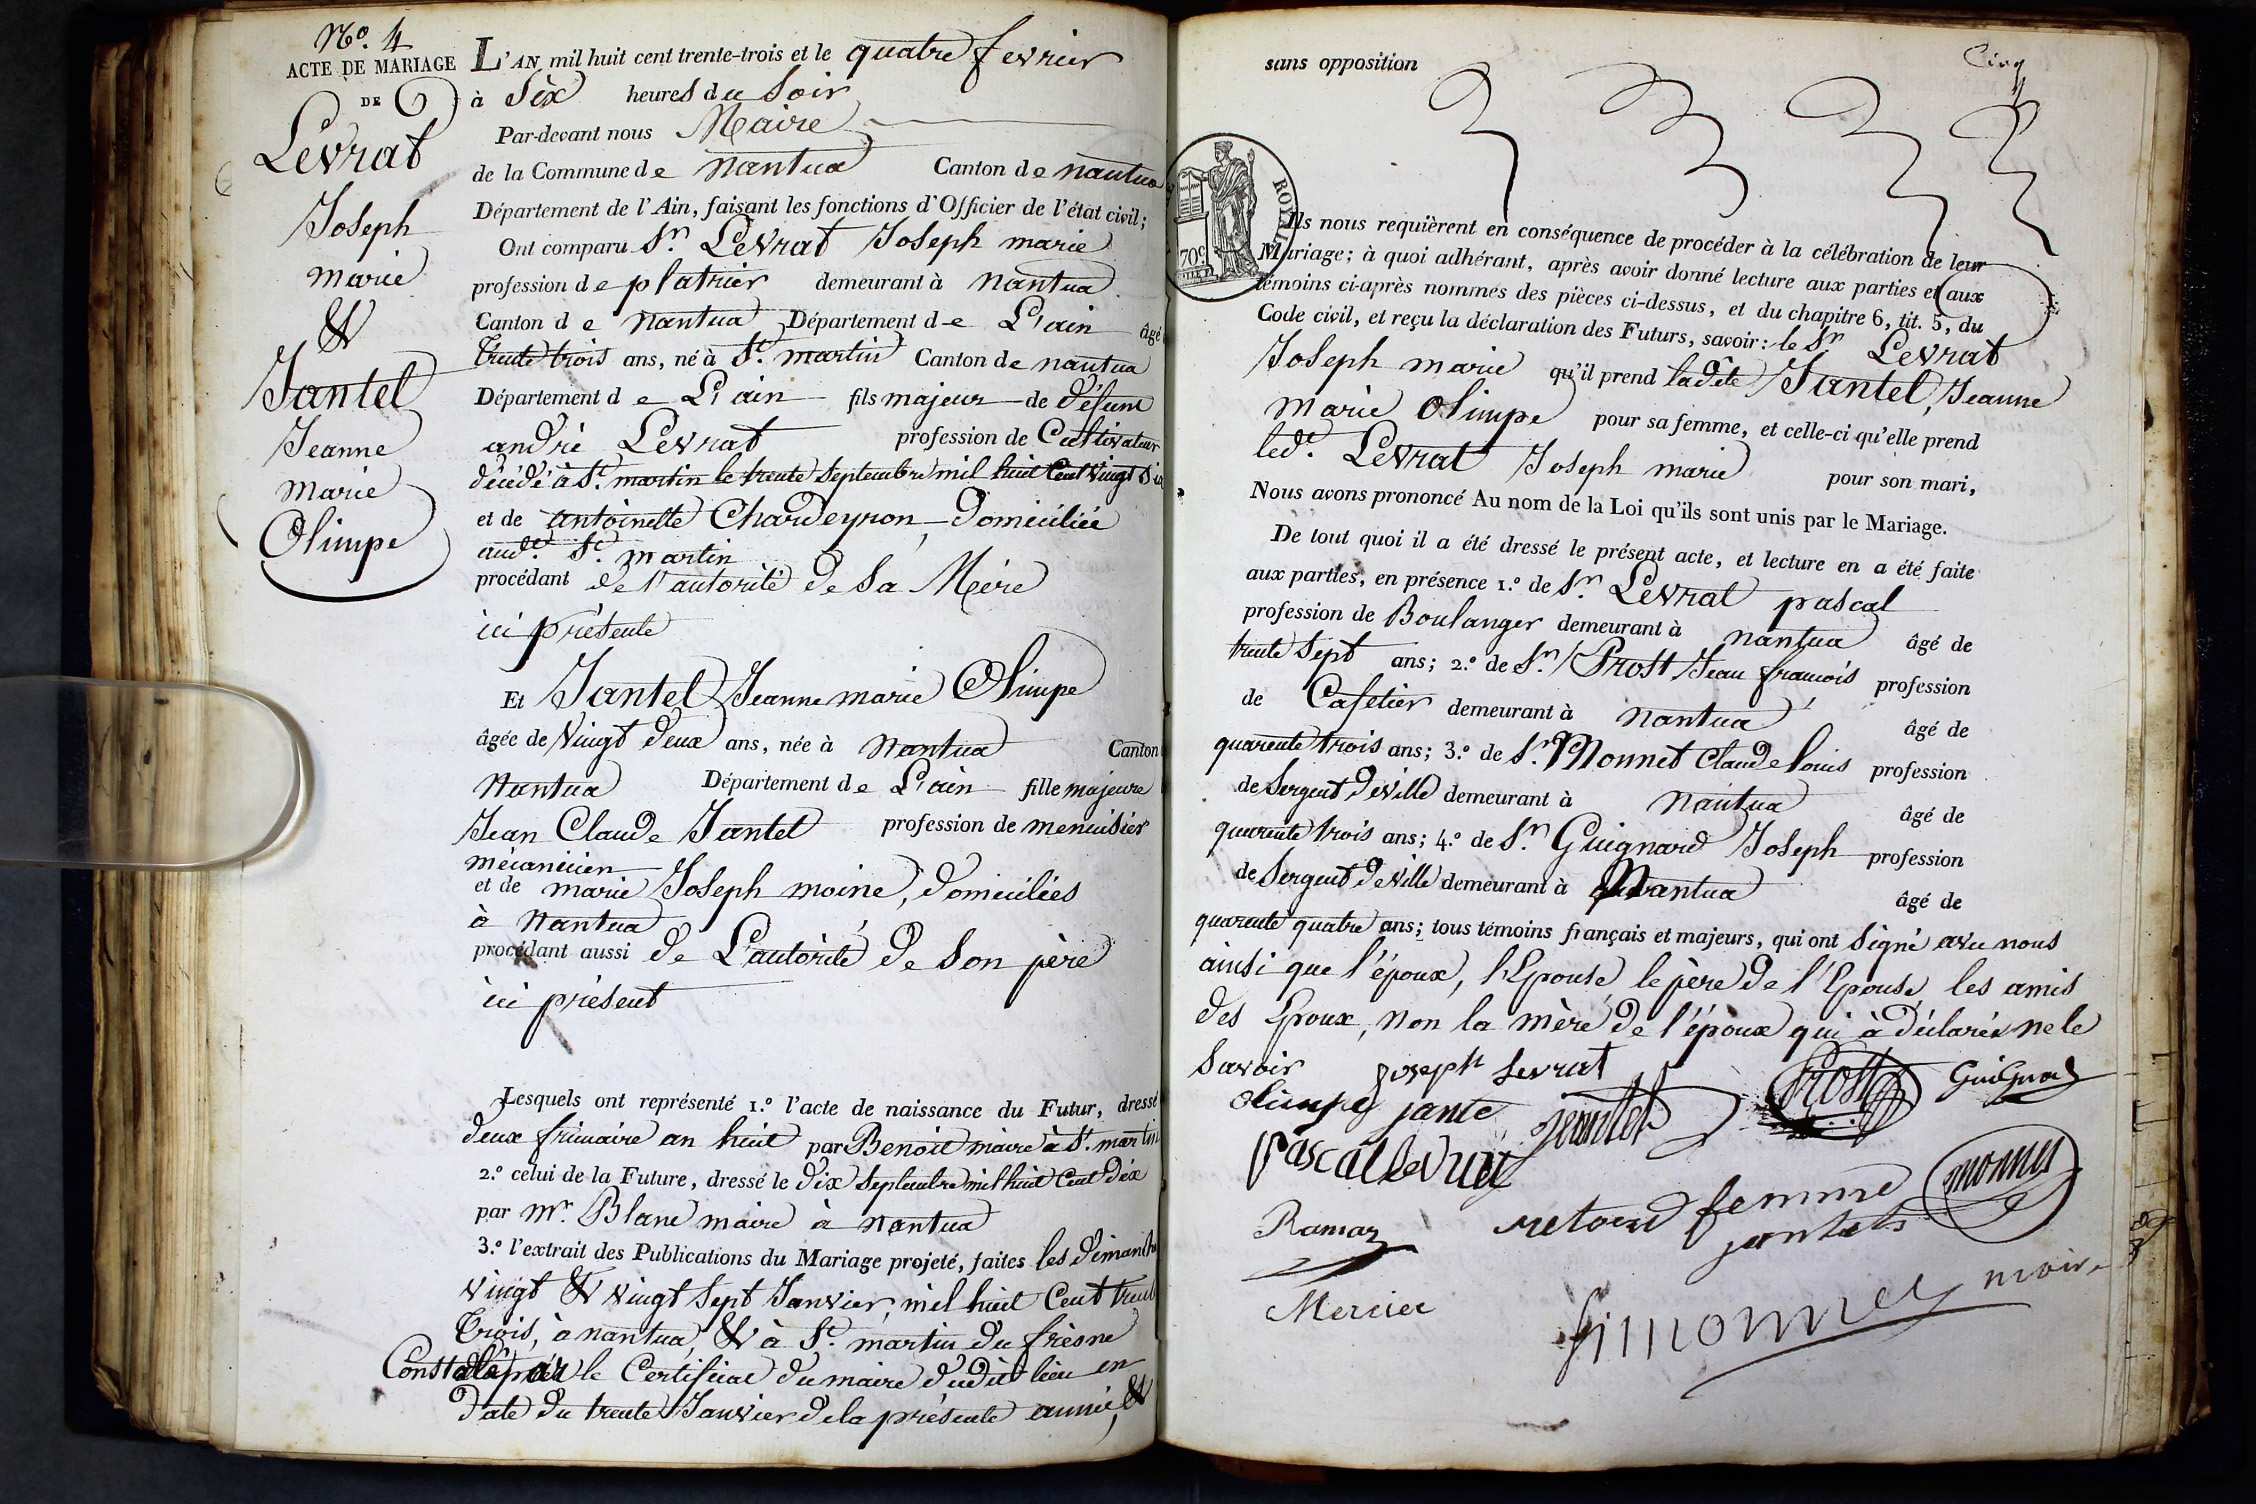 N.o 4
ACTE DE MARIAGE
DE
Levrat
Joseph
marie
&
Jantel
Jeanne
Marie
Olimpe
L'AN mil huit cent trente-trois et le quatre fevrier
à Six heures du Soir
Par-devant nous Maire
de la Commune de Nantua Canton de nantua
Département de l'Ain, faisant les fonctions d'Officier de l'état civil;
Ont comparu Sr. Levrat Joseph marie
profession de platrier demeurant à Nantua
Canton de Nantua Département de L'ain âgé
Trente trois ans, né à St. martin Canton de nantua
Département de L'ain fils majeur de défunt
andré Levrat profession de Cultivateur
décédé à St. martin le trente Septembre mil huit Cent vingt Six
et de antoinette Chardeyron, domiciliée
aud.t St. martin
procédant de l'autorité de Sa Mére
ici présente
Et Jantel Jeanne marie Olimpe
âgée de Vingt deux ans, née à Nantua Canton
Nantua Département de L'ain fille majeure
Jean Claude Jantel profession de menuisier
mécanicien
et de marie Joseph moine, domiciliés
à Nantua
procédant aussi de L'autorité de Son père
ici présent
Lesquels ont représenté 1.º l'acte de naissance du Futur, dressé
deux frimaire an huit par Benoit maire à St. martin
2.º celui de la Future, dressé le dix Septembre mil huit Cent dix
par Mr. Blanc maire à Nantua
3.º l'extrait des Publications du Mariage projeté, faites les dimanche
vingt & vingt Sept Janvier, mil huit Cent trente
Trois, à nantua, & à St. martin du frêsne
Constaté par le Certificat du maire dudit lieu en
date du trente Janvier de la présente année, &
Cinq
sans opposition
ROYAL
70c.
Ils nous requièrent en conséquence de procéder à la célébration de leur
Mariage; à quoi adhérant, après avoir donné lecture aux parties et aux
témoins ci-après nommés des pièces ci-dessus, et du chapitre 6, tit. 5, du
Code civil, et reçu la déclaration des Futurs, savoir: le Sr Levrat
Joseph marie qu'il prend ladite Jantel, Jeanne
Marie Olimpe pour sa femme, et celle-ci qu'elle prend
led.t Levrat Joseph marie pour son mari,
Nous avons prononcé Au nom de la Loi qu'ils sont unis par le Mariage.
De tout quoi il a été dressé le présent acte, et lecture en a été faite
aux parties, en présence 1.º de Sr. Levrat pascal
profession de Boulanger demeurant à Nantua âgé de
trente Sept ans; 2.º de Sr. Prost Jean francois profession
de Cafetier demeurant à Nantua âgé de
quarente trois ans; 3.º de Sr. Monnet Claude louis profession
de Sergent de Ville demeurant à Nantua âgé de
quarente trois ans; 4.º de Sr. Guignard Joseph profession
de Sergent de Ville demeurant à Nantua âgé de
quarente quatre ans; tous témoins français et majeurs, qui ont Signé avec nous
ainsi que l'époux, l'Epouse le père de l'Epouse, les amis
des Epoux, non la mère de l'époux qui à déclarée ne le
Savoir joseph Levrat
Prost Guignard
olimpe jante jeantet
Pascal Levrat
monnet
Ramaz
femme
jantet
Mercier
Simonnet maire